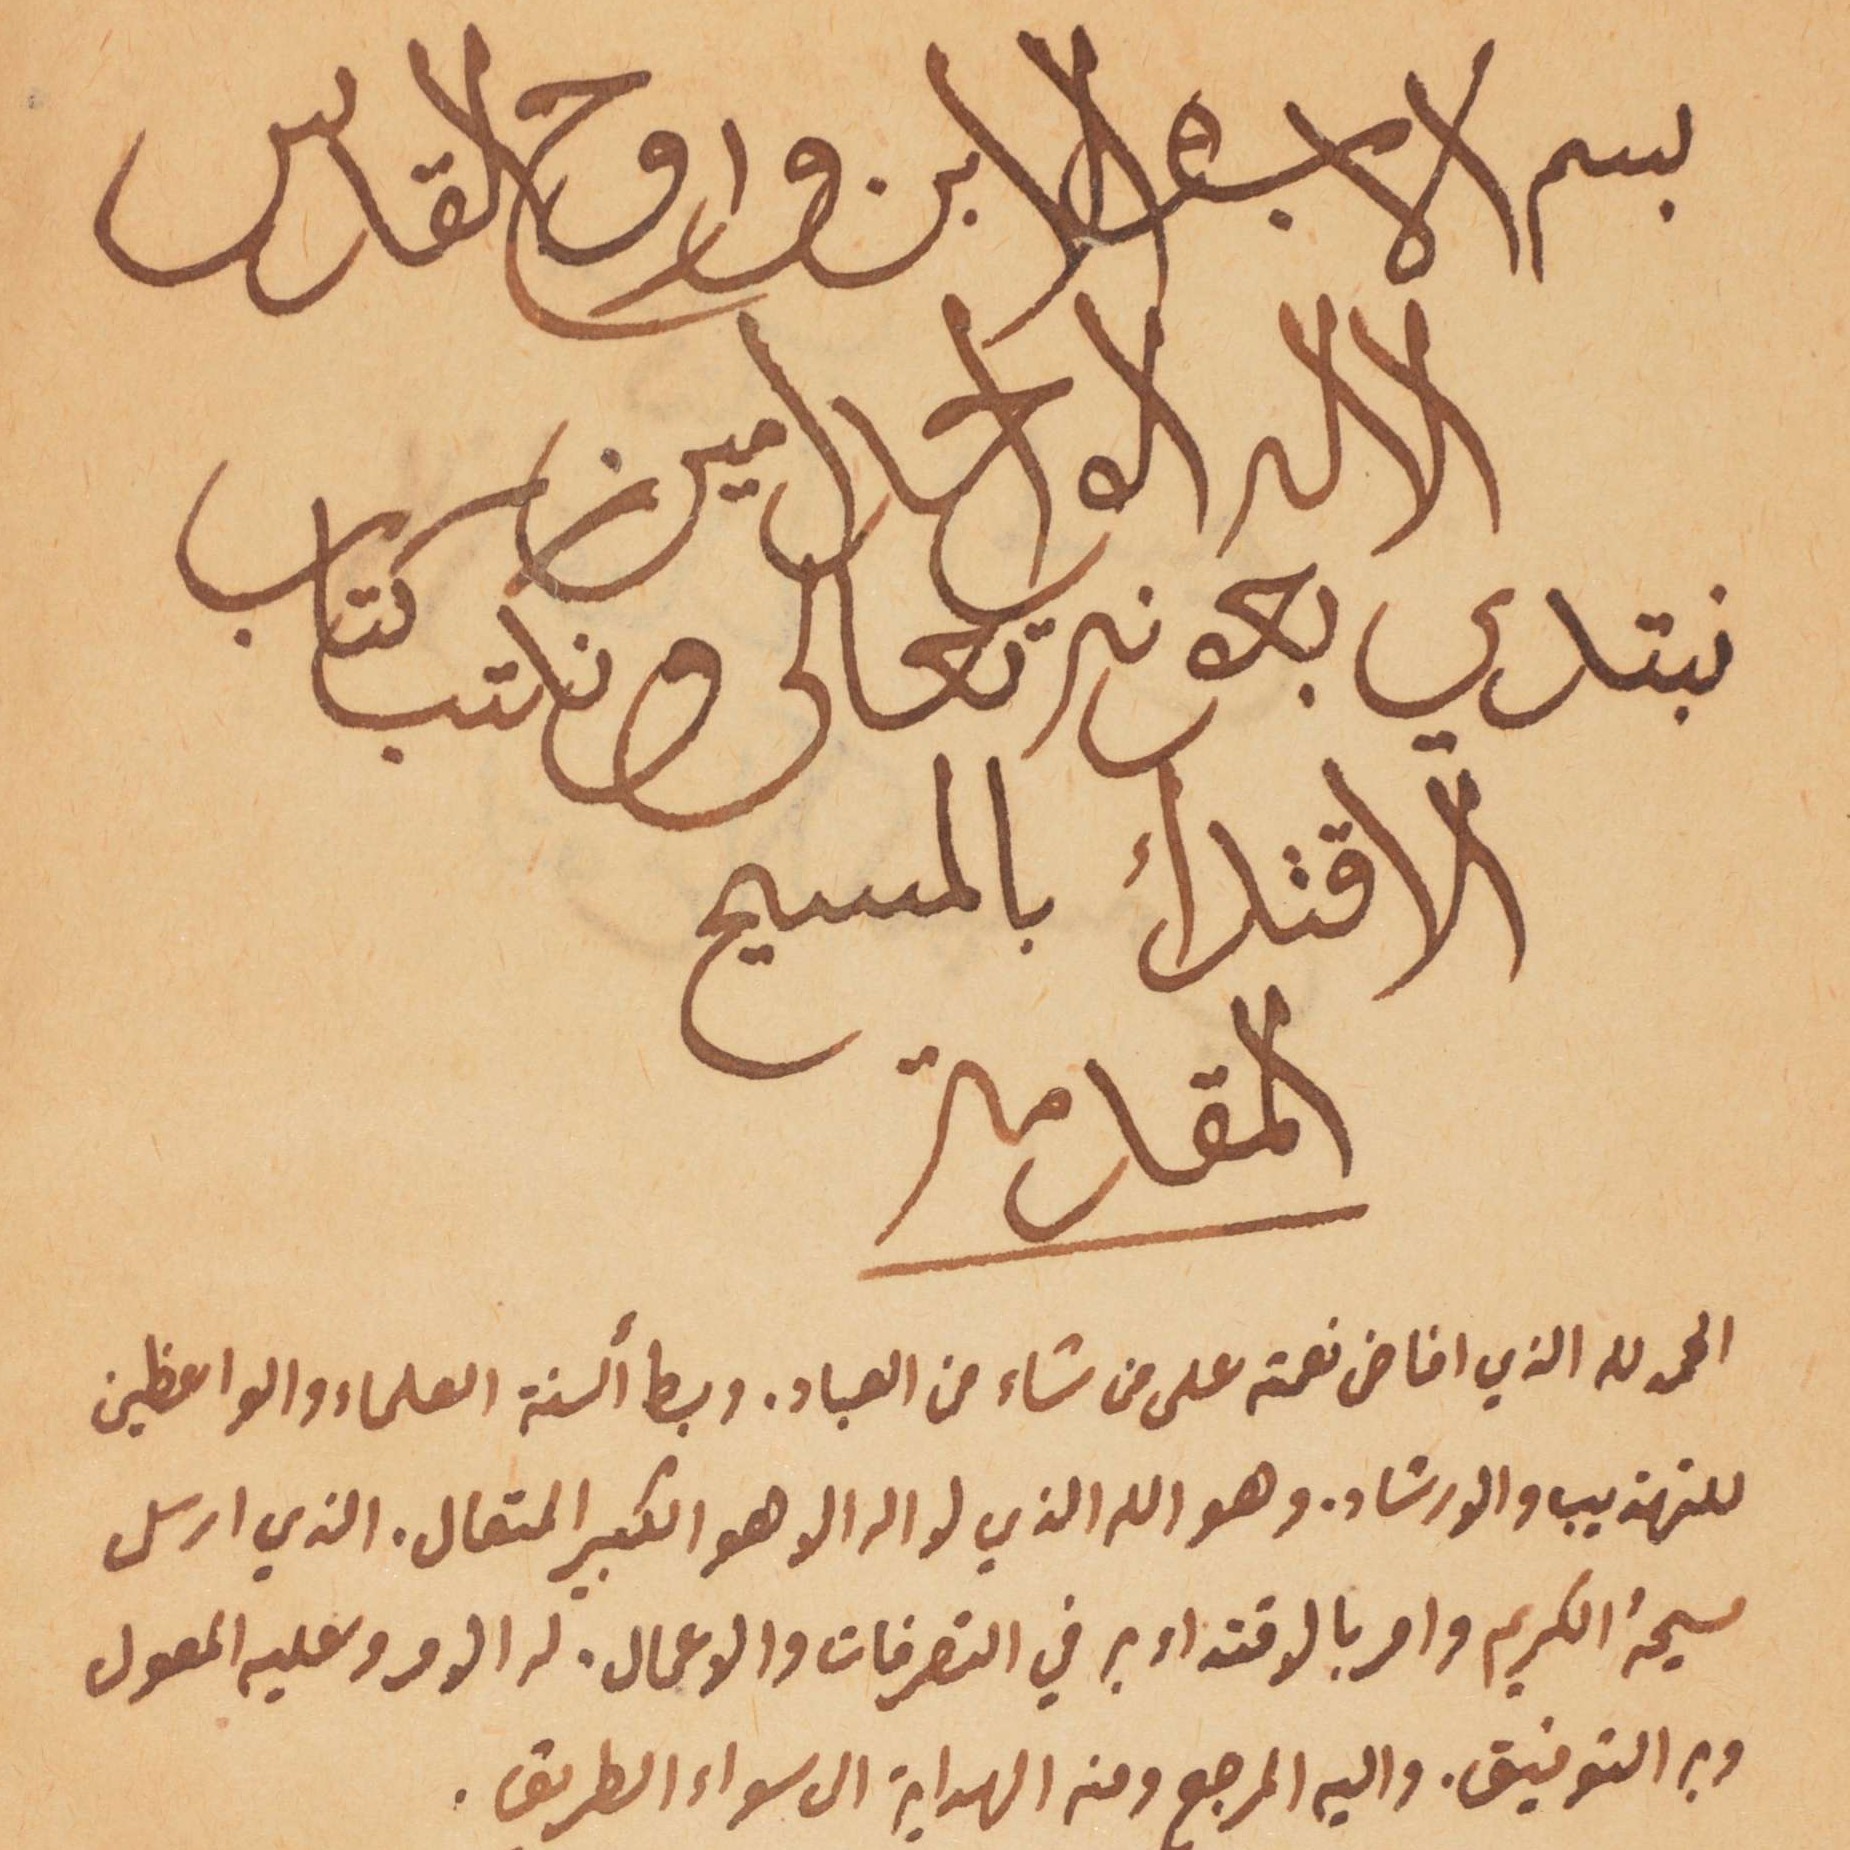 بسم الاب والابن والروح القدس
الاله الواحد امين
نبتدي بعونه تعالى ونكتب كتاب
الاقتداء بالمسيح
المقدمة
الحمد لله الذي افاض نعمته على من شاء من العباد. وبسط ألسنة العلماء والواعظين
للتهذيب والارشاد. وهو الله الذي لا اله الا هو الكبير المتعال. الذي ارسل
مسيحهُ الكريم وامر بالاقتداء به في التصرفات والاعمال. له الامر وعليه المعول
وبه التوفيق. واليه المرجع ومنه الهداية الى سواء الطريق.